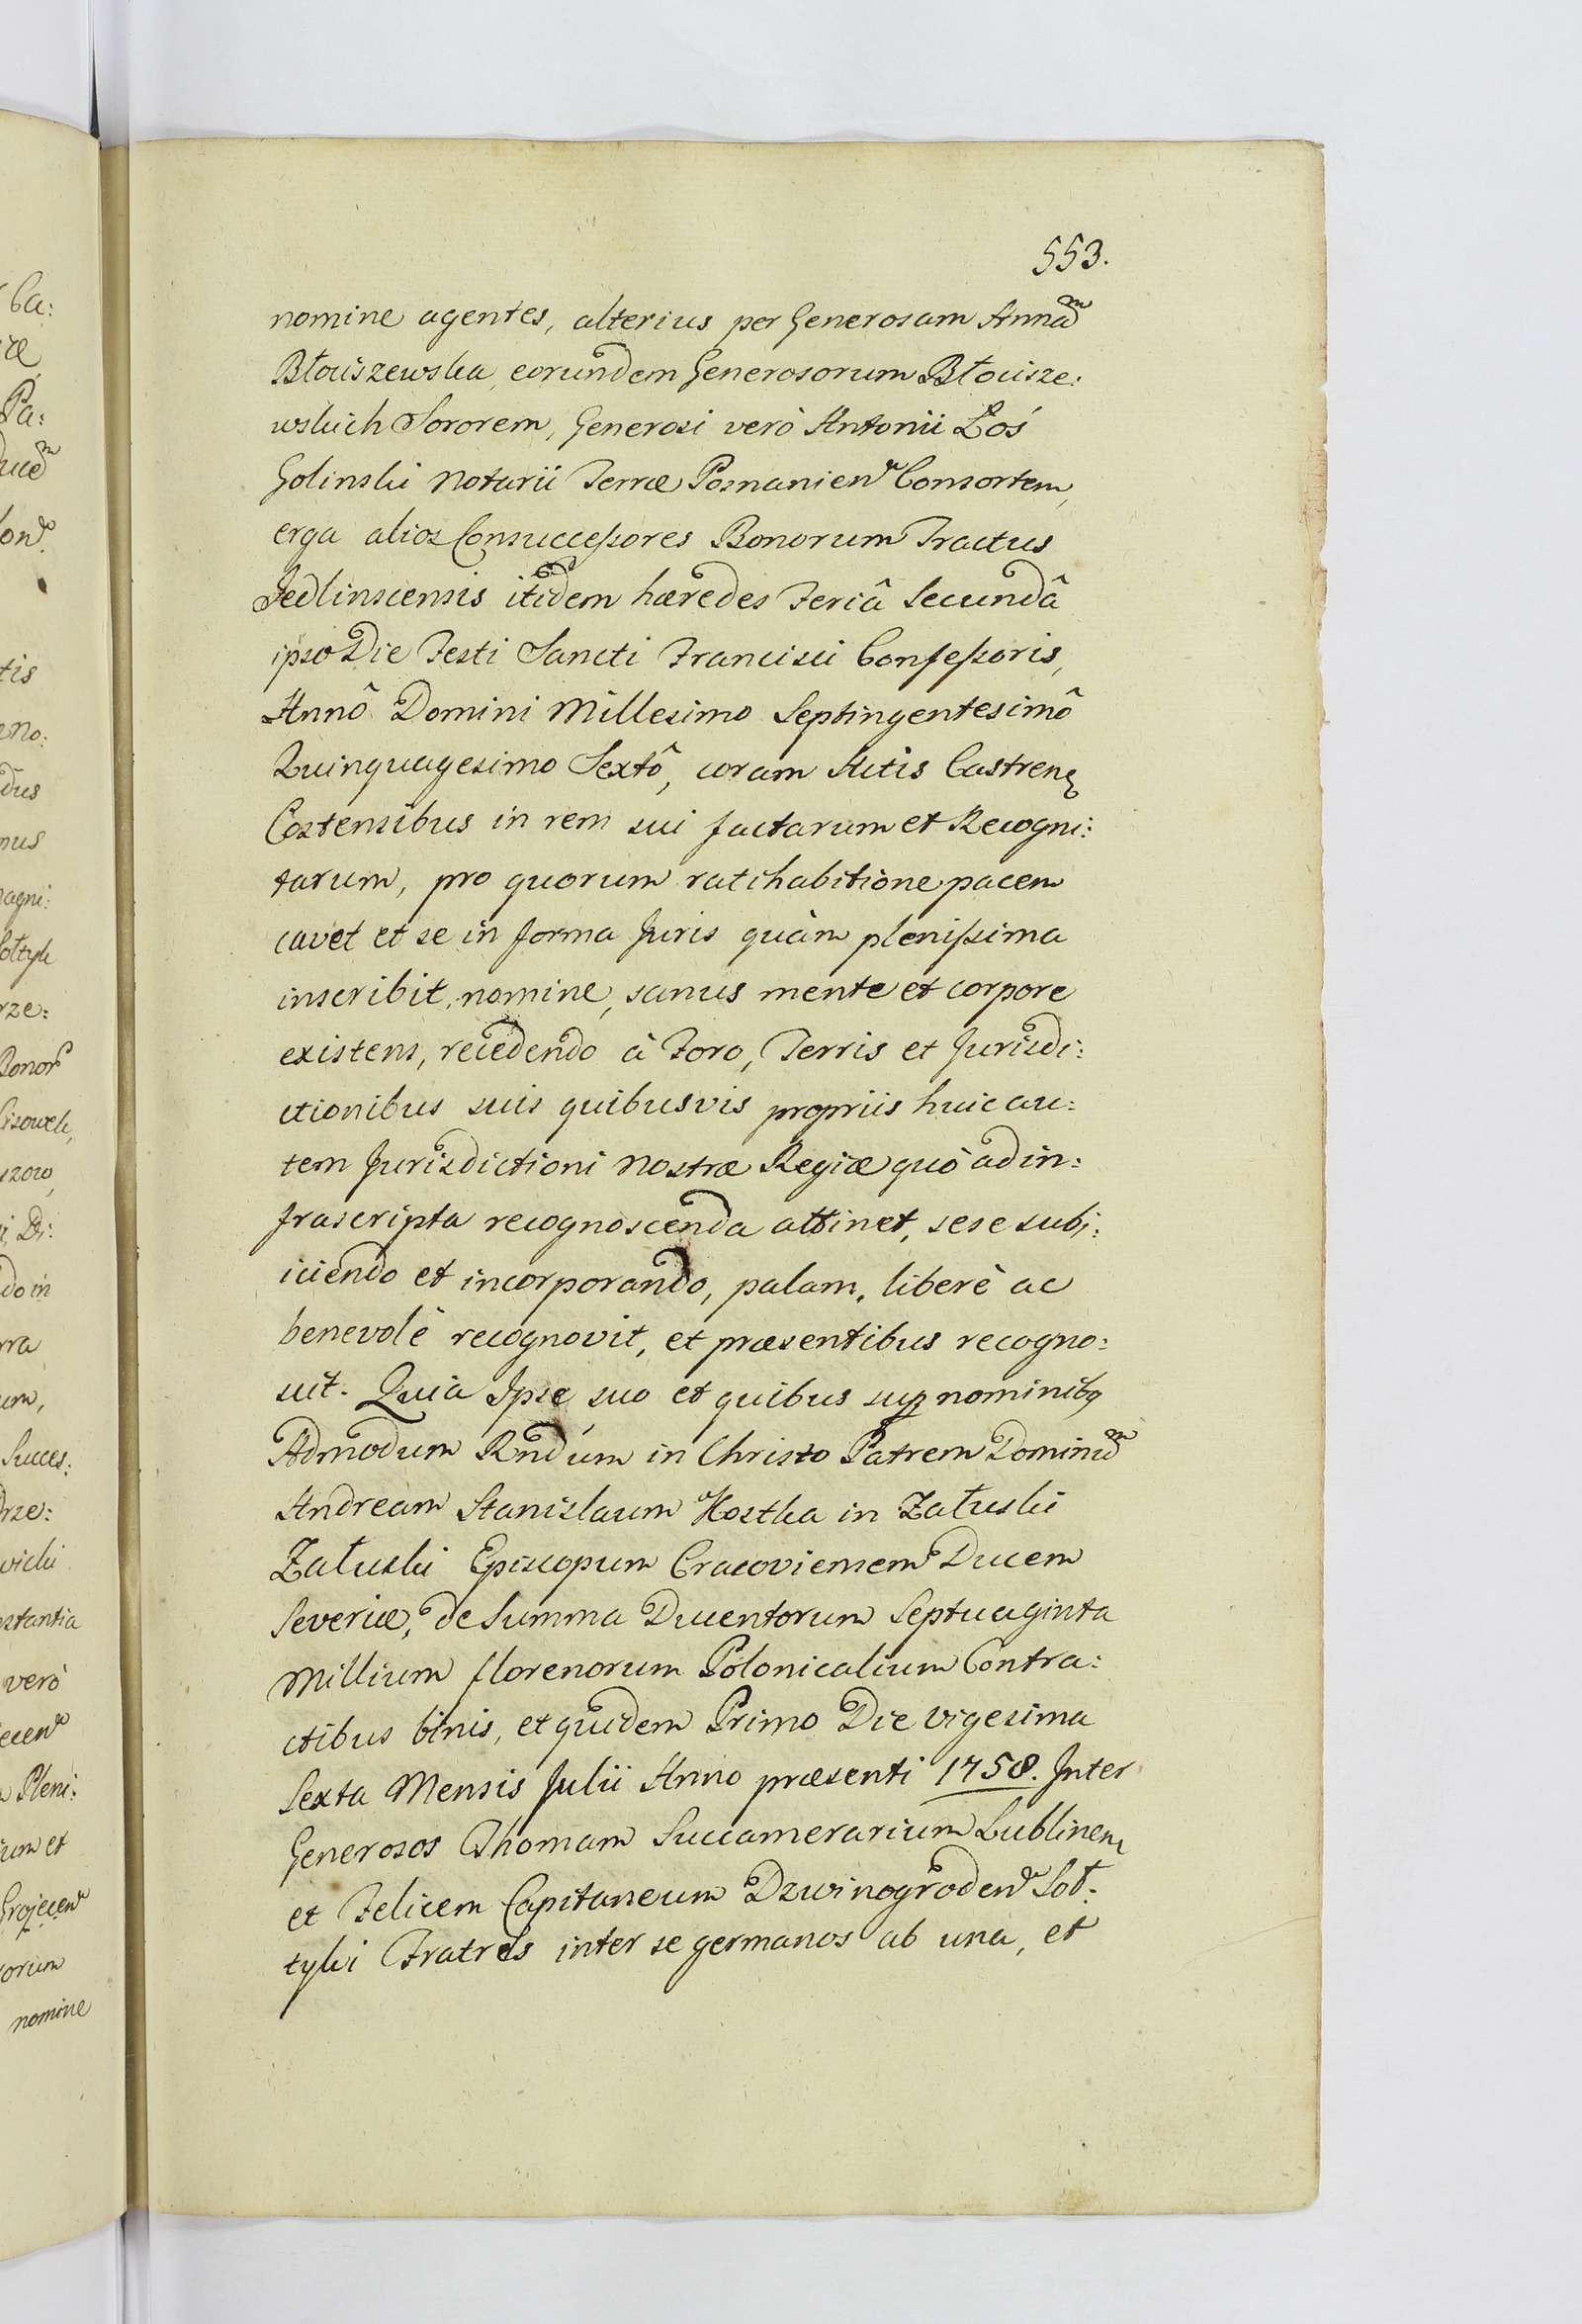 553.
nomine agentes, alterius per Generosam Annam
Błociszewska eorundem Generosorum Błocisze:
wskich Sororem, Generosi verò Antonii Łoś
Golinski Notarii Terræ Posnanien Consortem,
erga alios Consuccessores Bonorum Tractus
Jedlinscensis itidem hæredes Feriâ Secundâ
ipso Die Festi Sancti Francisci Confessoris,
Annô Domini Millesimo Septingentesimô
Quinquagesimo Sextô, coram Actis Castren
Costensibus in rem sui factarum et Recogni:
tarum, pro quorum ratihabitione pacem
cavet et se in forma Juris quàm plenissima
inscribit, nomine, sanus mente et corpore
existens, recedendo à Foro, Terris et Jurisdi:
ctionibus suis quibusvis propriis huic au:
tem Jurisdictioni Nostræ Regiæ quò ad in:
frascripta recognoscenda attinet, sese subi:
iciendo et incorporando, palam, liberè ac
benevolè recognovit, et præsentibus recogno:
scit. Quia Ipse suo et quibus sup nominibq
Admodum Rndum in Christo Patrem Dominum
Andream Stanislaum Kostka in Załuski
Załuski Episcopum Cracoviensem Ducem
Severiæ, de Summa Ducentorum Septuaginta
Millium florenorum Polonicalium Contra:
ctibus binis, et quidem Primo Die Vigesima
Sexta Mensis Julii Anno præsenti 1758. Inter
Generosos Thomam Succamerarium Lublinen
et Felicem Capitaneum Dzwinogroden Soł:
tyki Fratres inter se germanos ab una, et